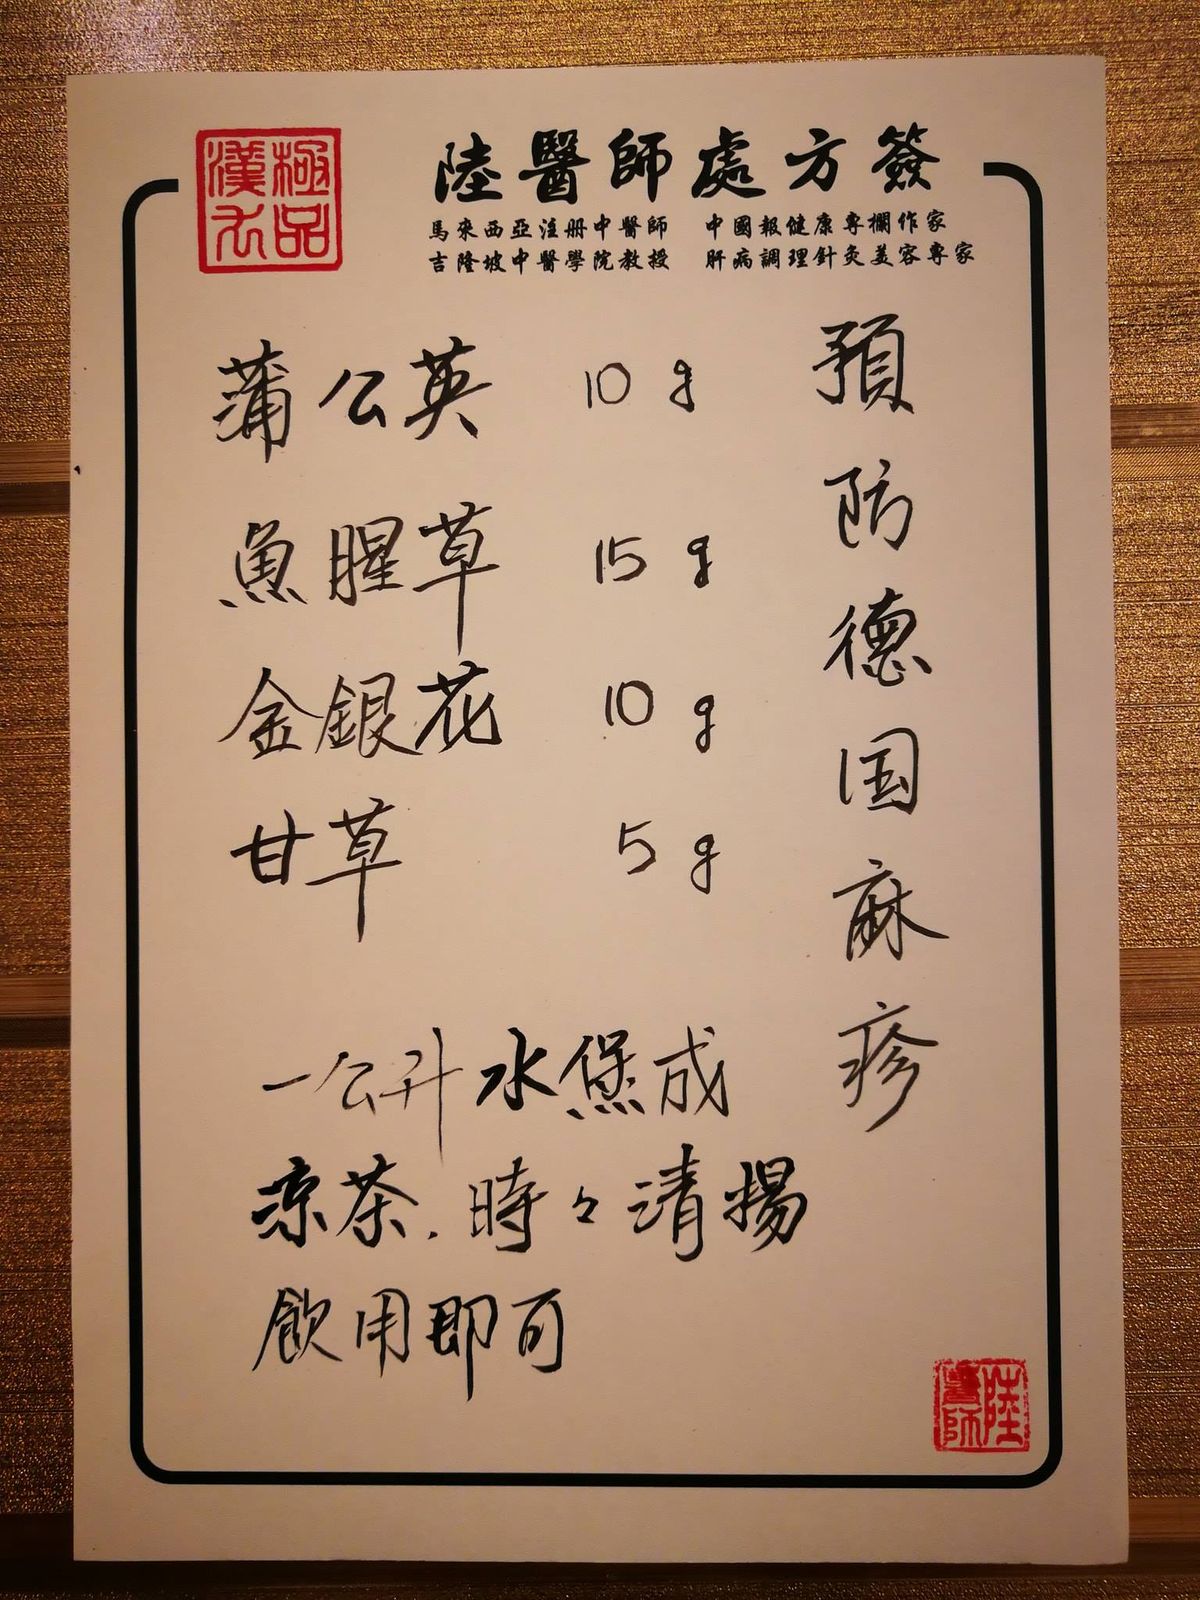 極品
漢方
陸醫師處方簽
馬來西亞注册中醫師　中國報健康專欄作家
吉隆坡中醫學院教授　肝病調理針灸美容專家
預防德国麻疹
蒲公英 10g
魚腥草 15g
金銀花 10g
甘草 5g
一公升水煲成
涼茶．時々清揚
飲用即可
陸醫師